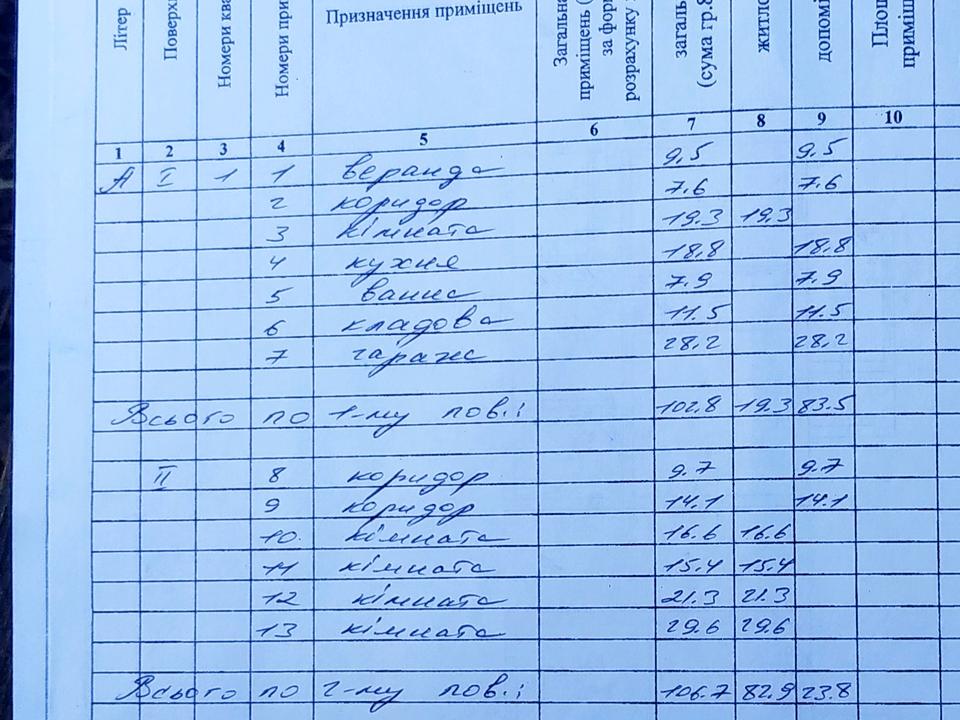 Літер
Поверх
Номери ква
Номери при
Призначення приміщень
Загальна
приміщень (
за форм
розрахунку
загаль
(сума гр.8
житло
допомі
Площ
приміщ
1 2 3 4 5 6 7 8 9 10
А I 1 1 веранда 9,5 9.5
2 коридор 7.6 7.6
3 кімната 19.3 19,3
4 кухня 18,8 18.8
5 ванна 7.9 7.9
6 кладова 11.5 11.5
7 гараж 28,2 28,2
Всього по 1-му пов.: 102.8 19.3 83.5
II 8 коридор 9.7 9.7
9 коридор 14.1 14.1
10. кімната 16.6 16.6
11 кімната 15.4 15.4
12 кімната 21.3 21.3
13 кімната 29.6 29.6
Всього по 2-му пов.: 106.7 82.9 23.8